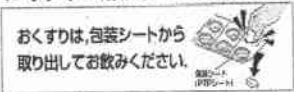 おくすりは,包装シートから
取り出してお飲みください.
包装シート
(PTPシート)